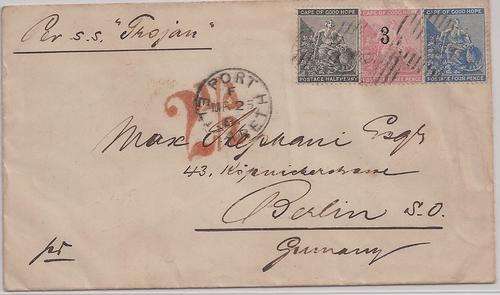 Per s.s. "Trojan"
CAPE OF GOOD HOPE
POSTAGE HALFPENNY
CAPE OF GOOD HOPE
3
PENCE
CAPE OF GOOD HOPE
POSTAGE FOUR PENCE
PORT ELIZABETH
Max Esqr
43, Köpnickerstrasse
Berlin S.O.
Germany